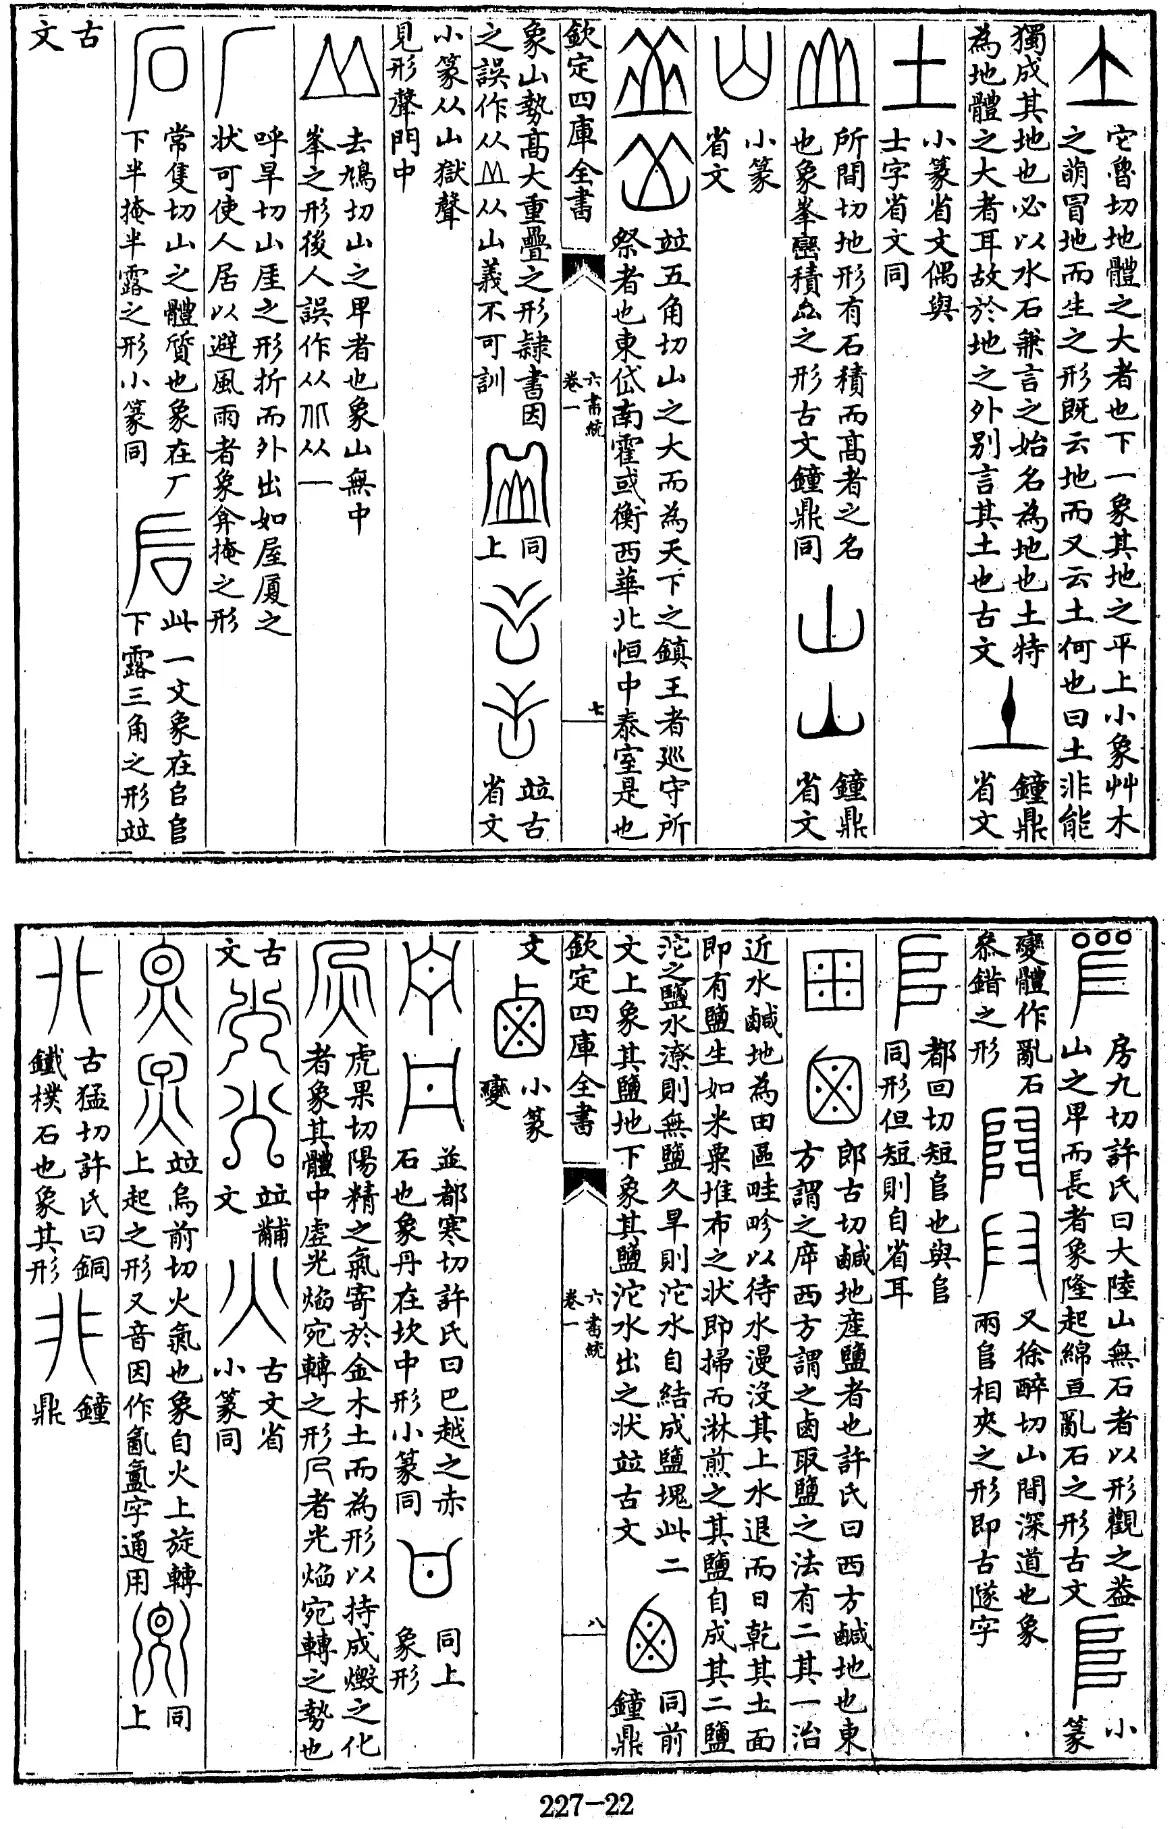 它魯切地體之大者也下一象其地之平上小象艸木
之萌冒地而生之形既云地而又云土何也曰土非能
獨成其地也必以水石兼言之始名為地也土特
為地體之大者耳故於地之外别言其土也古文
鐘鼎
省文
小篆省文偶與
士字省文同
所間切地形有石積而高者之名
也象峯巒積之形古文鐘鼎同
鐘鼎
省文
小篆
省文
竝五角切山之大而為天下之鎮王者廵守所
祭者也東岱南霍或衡西華北恒中泰室是也
欽定四庫全書
六書統
卷一
七
象山勢高大重疊之形隷書因
之誤作从从山義不可訓
同
上
竝古
省文
小篆从山獄聲
見形聲門中
去鳩切山之卑者也象山無中
峯之形後人誤作从从一
呼旱切山厓之形折而外出如屋厦之
状可使人居以避風雨者象弇掩之形
常隻切山之體質也象在厂
下半掩半露之形小篆同
此一文象在𠂤𨸏
下露三角之形竝
古
文
房九切許氏曰大陸山無石者以形觀之葢
山之卑而長者象隆起綿亘亂石之形古文
小
篆
變體作亂石
叅錯之形
又徐醉切山間深道也象
兩𨸏相夾之形即古隧字
都回切短𨸏也與𨸏
同形但短則自省耳
郎古切鹹地産鹽者也許氏曰西方鹹地也東
方謂之㡿西方謂之鹵取鹽之法有二其一治
近水鹹地為田區畦畛以待水漫没其上水退而日乾其土面
即有鹽生如米粟堆布之状即掃而淋煎之其鹽自成其二鹽
沱之鹽水潦則無鹽久旱則沱水自結成鹽塊此二
文上象其鹽地下象其鹽沱水出之状竝古文
同前
鐘鼎
欽定四庫全書
六書統
卷一
八
文
小篆
變
並都寒切許氏曰巴越之赤
石也象丹在坎中形小篆同
同上
象形
虎果切陽精之氣寄於金木土而為形以持成燬之化
者象其體中虛光焰宛轉之形𠃜者光焰宛轉之勢也
古
文
竝黼
文
古文省
小篆同
竝烏前切火氣也象自火上旋轉
上起之形又音因作氤氲字通用
同
上
古猛切許氏曰銅
鐵樸石也象其形
鐘
鼎
227-22